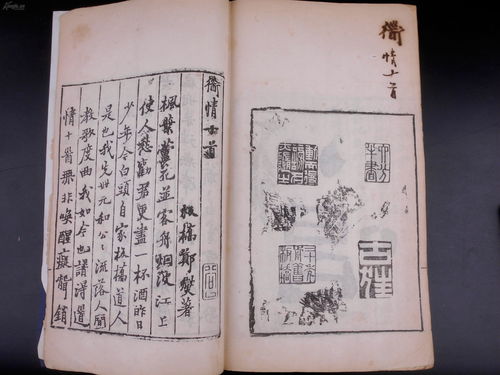 衜情十首
六分半書
衜情十首
板橋鄭燮著
楓葉蘆花並客舟烟波江上
使人愁勸君更盡一杯酒昨日
少年今白頭自家板橋道人
是也我先世元和公公流落人間
教歌度曲我如今也譜得道
情十首無非喚醒癡聾銷